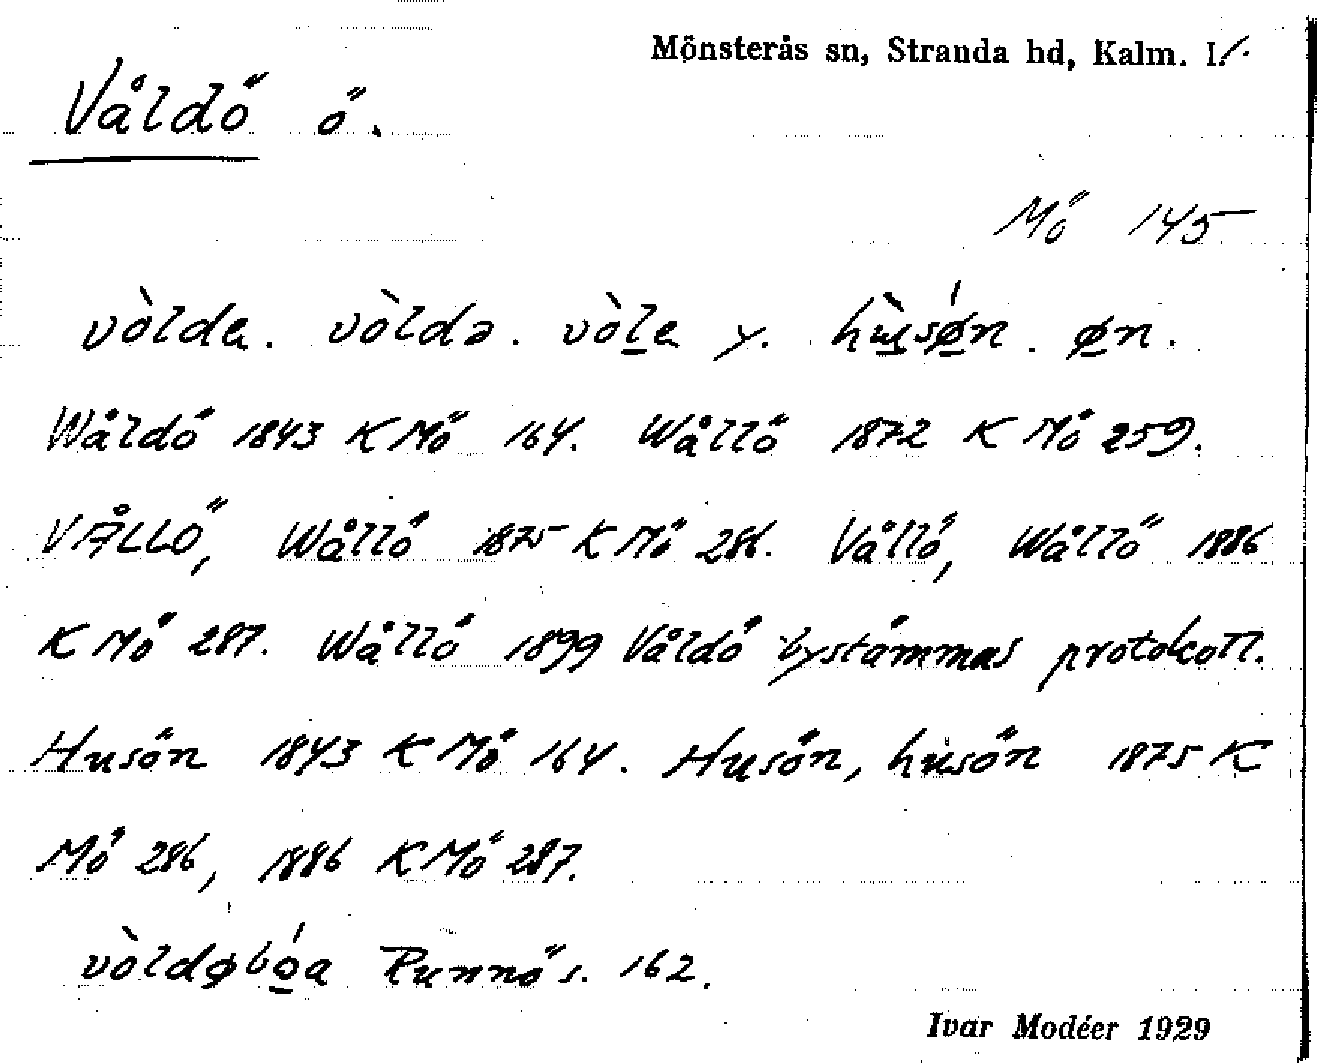 Mönsterås sn, Stranda hd, Kalm. l.
Våldö ö.
Mö 145
vòlda. vòldə. vòl̲a y. hùs̲ǿ̲n. ø̲n.
Wåldö 1843 K Mö 164. Wållö 1872 K Mö 259.
VÅLLÖ, Wållö 1875 K Mö 286. Vållö, Wållö 1886
K Mö 287. Wållö 1899 Våldö bystämmas protokoll.
Husön 1843 K Mö 164. Husön, husön 1875 K
Mö 286, 1886 K Mö 287.
vòldøbó̲a Runnös. 162.
Ivar Modéer 1929